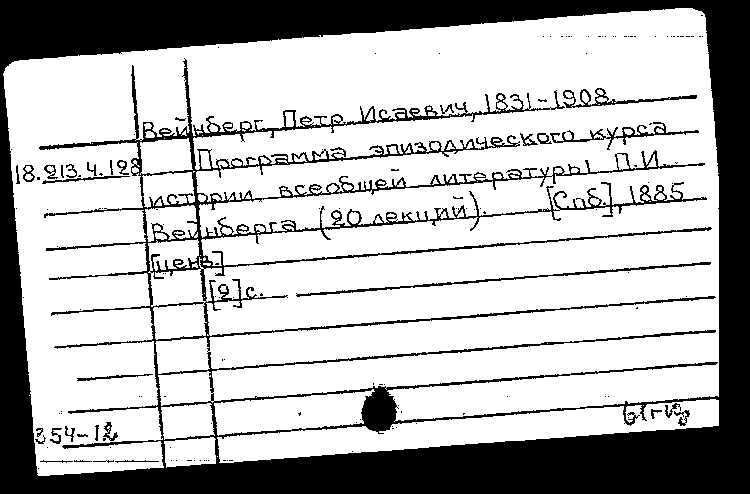 Вейнберг, Петр Исаевич, 1831-1908.
18.213.4.128 Программа эпизодического курса
истории всеобщей литературы П.И.
Вейнберга (20 лекций). [Спб], 1885
[ценз.]
[2] с.
354-12